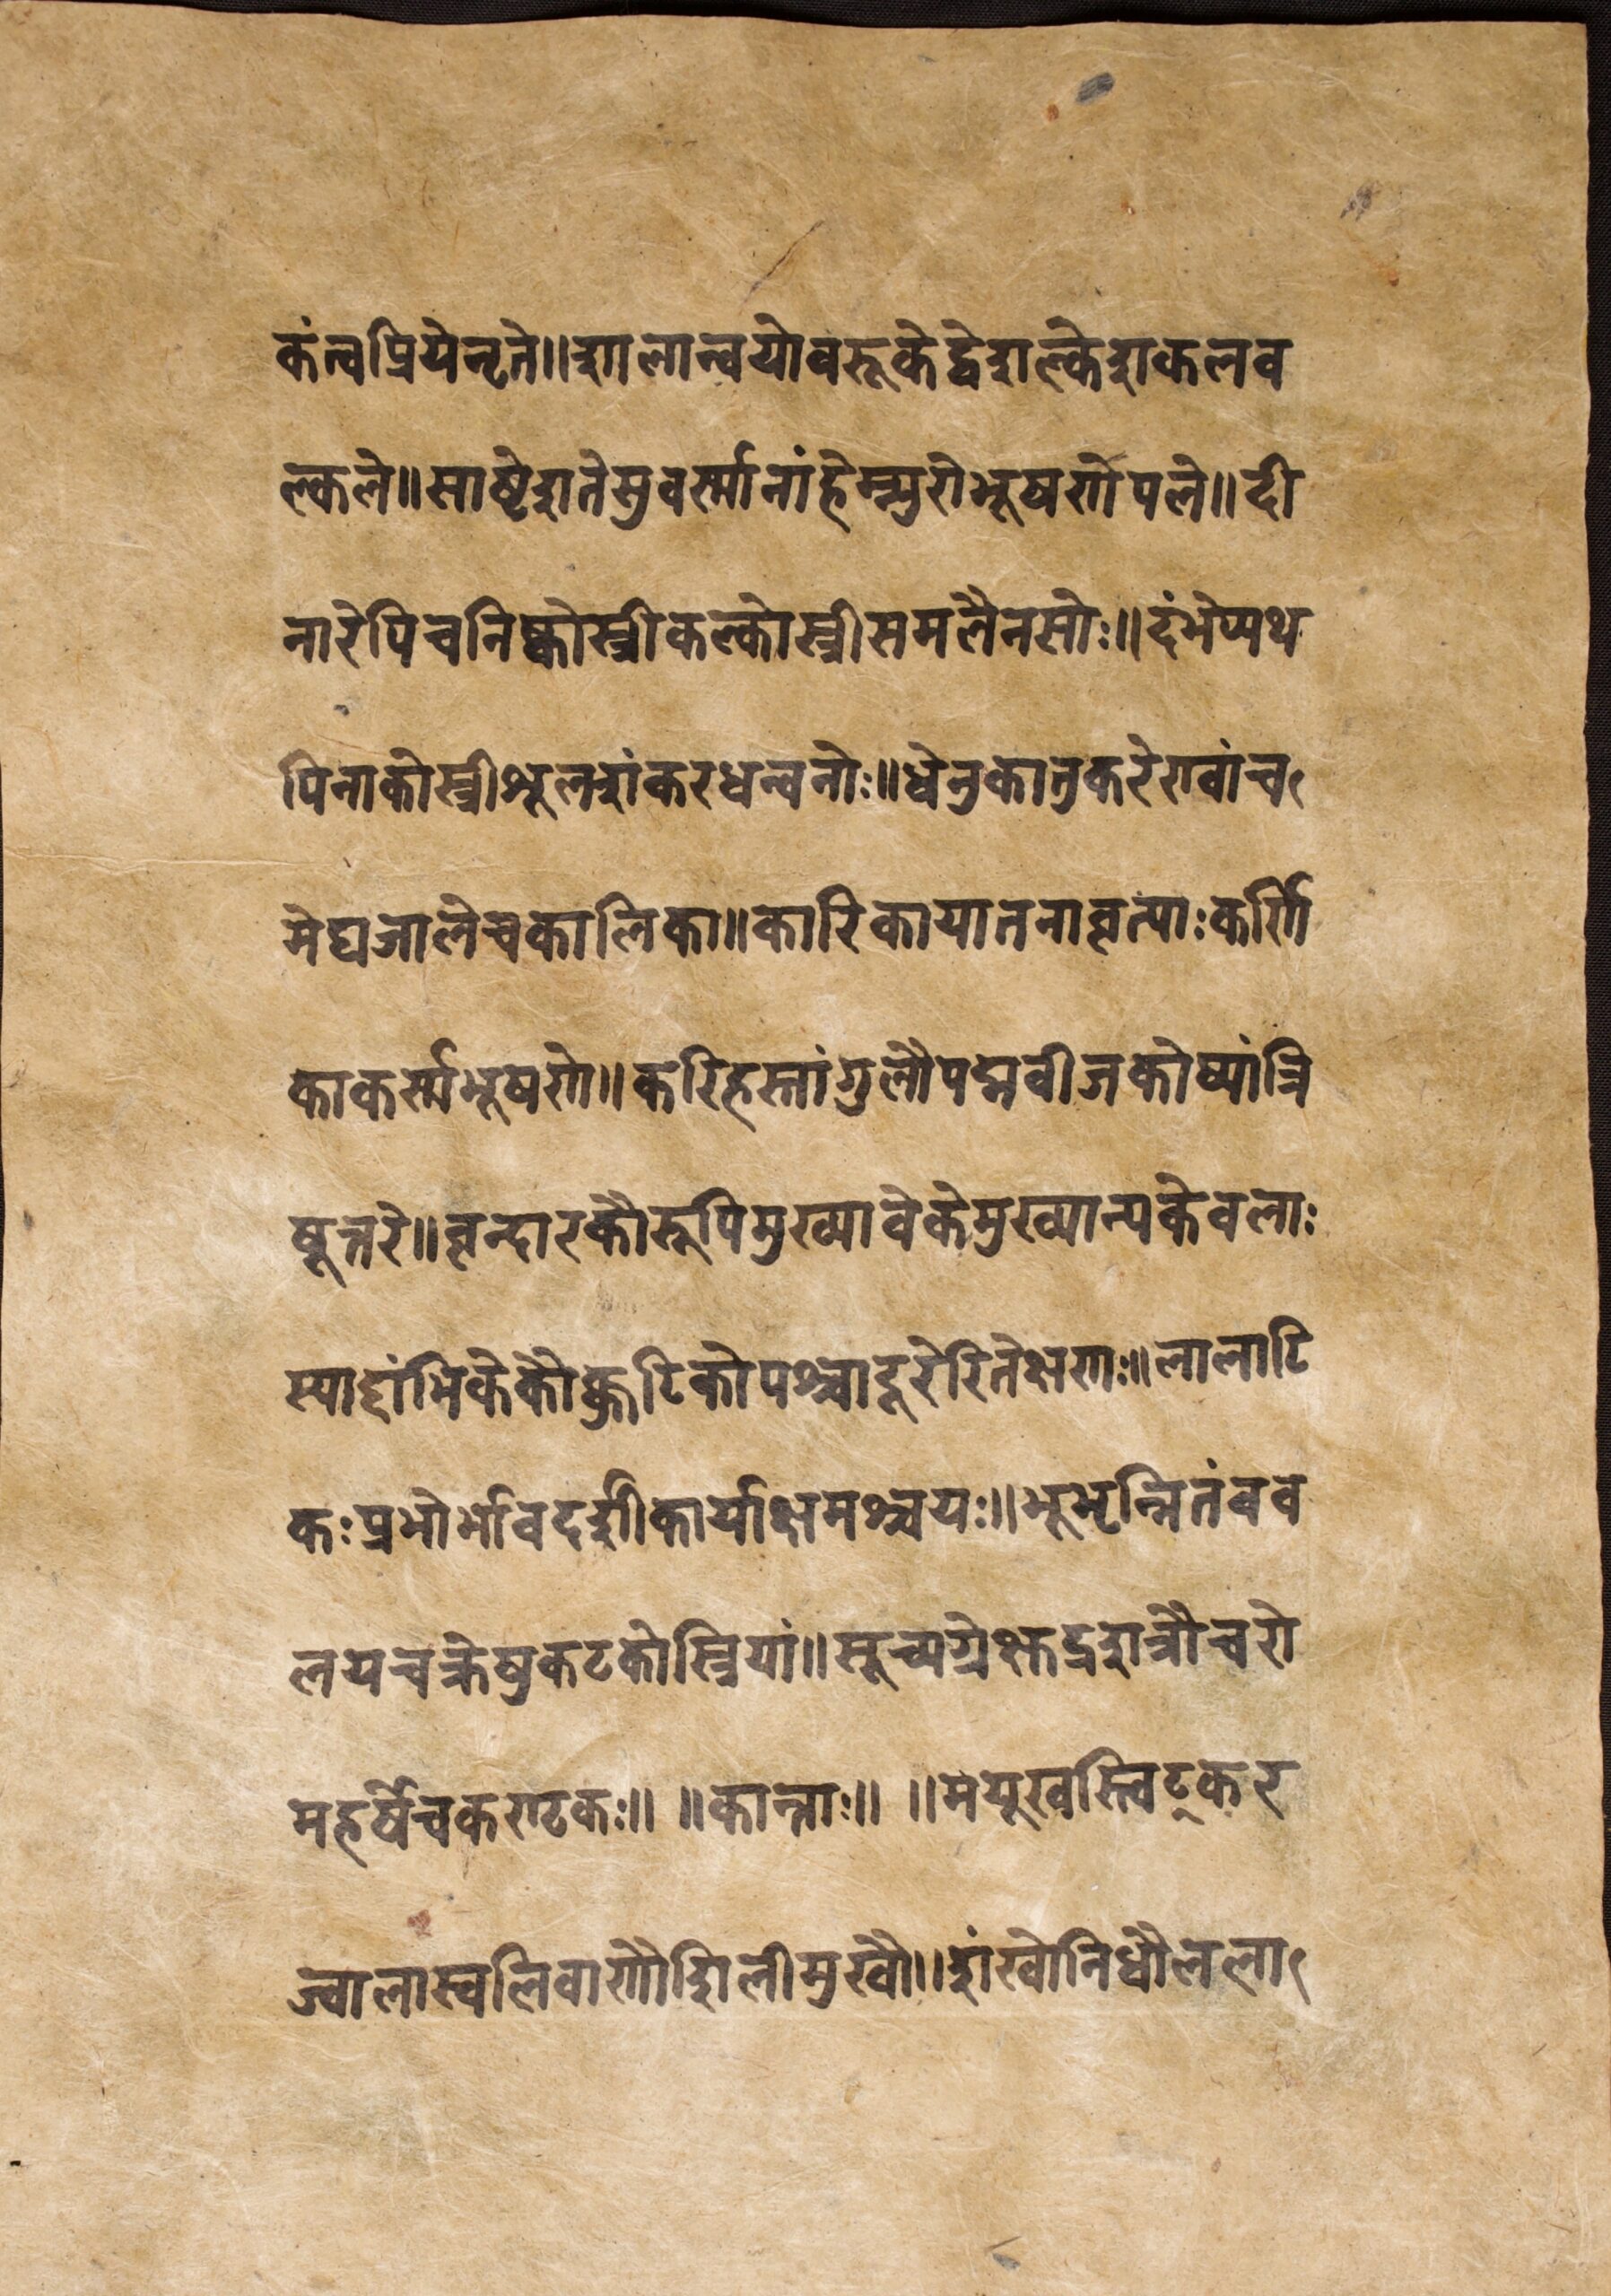 कंत्वप्रियेनृते॥शालान्वयोवरूकेद्वेशल्केशकलव
ल्कले॥साष्टेशतेसुवर्स्मानांहेम्न्युरोभूषणेपले॥दी
नारेपिचनिष्कोस्त्रीकल्कोस्त्रीसमलैनसोः॥दंभेप्यथ
पिनाकोस्त्रीश्रूलशंकरधन्वनोः॥धेनुकातुकरेण्वांच
मेघजालेचकालिका॥कारिकायातनावृत्याःकर्णि
काकर्स्मभूषणे॥करिहस्तांगुलौपद्मवीजकोष्यांत्रि
षूत्तरे॥वृन्दारकौरूपिमुख्यावेकेमुख्यान्यकेवलाः
स्याद्दांभिकेकौक्कुटिकोपश्चाद्दूरेरितेक्षणः॥लालाटि
कःप्रभोर्भावदर्शीकार्याक्षमश्चयः॥भूभृन्नितंबव
लयचक्रेषुकटकोस्त्रियां॥सूच्यग्रेक्षुद्रशत्रौचरो
महर्षेचकण्टकः॥ ॥कान्ताः॥ ॥मयूखस्त्विट्कर
ज्वालास्वलिवाणौशिलीमुखौ॥शंखोनिधौलला